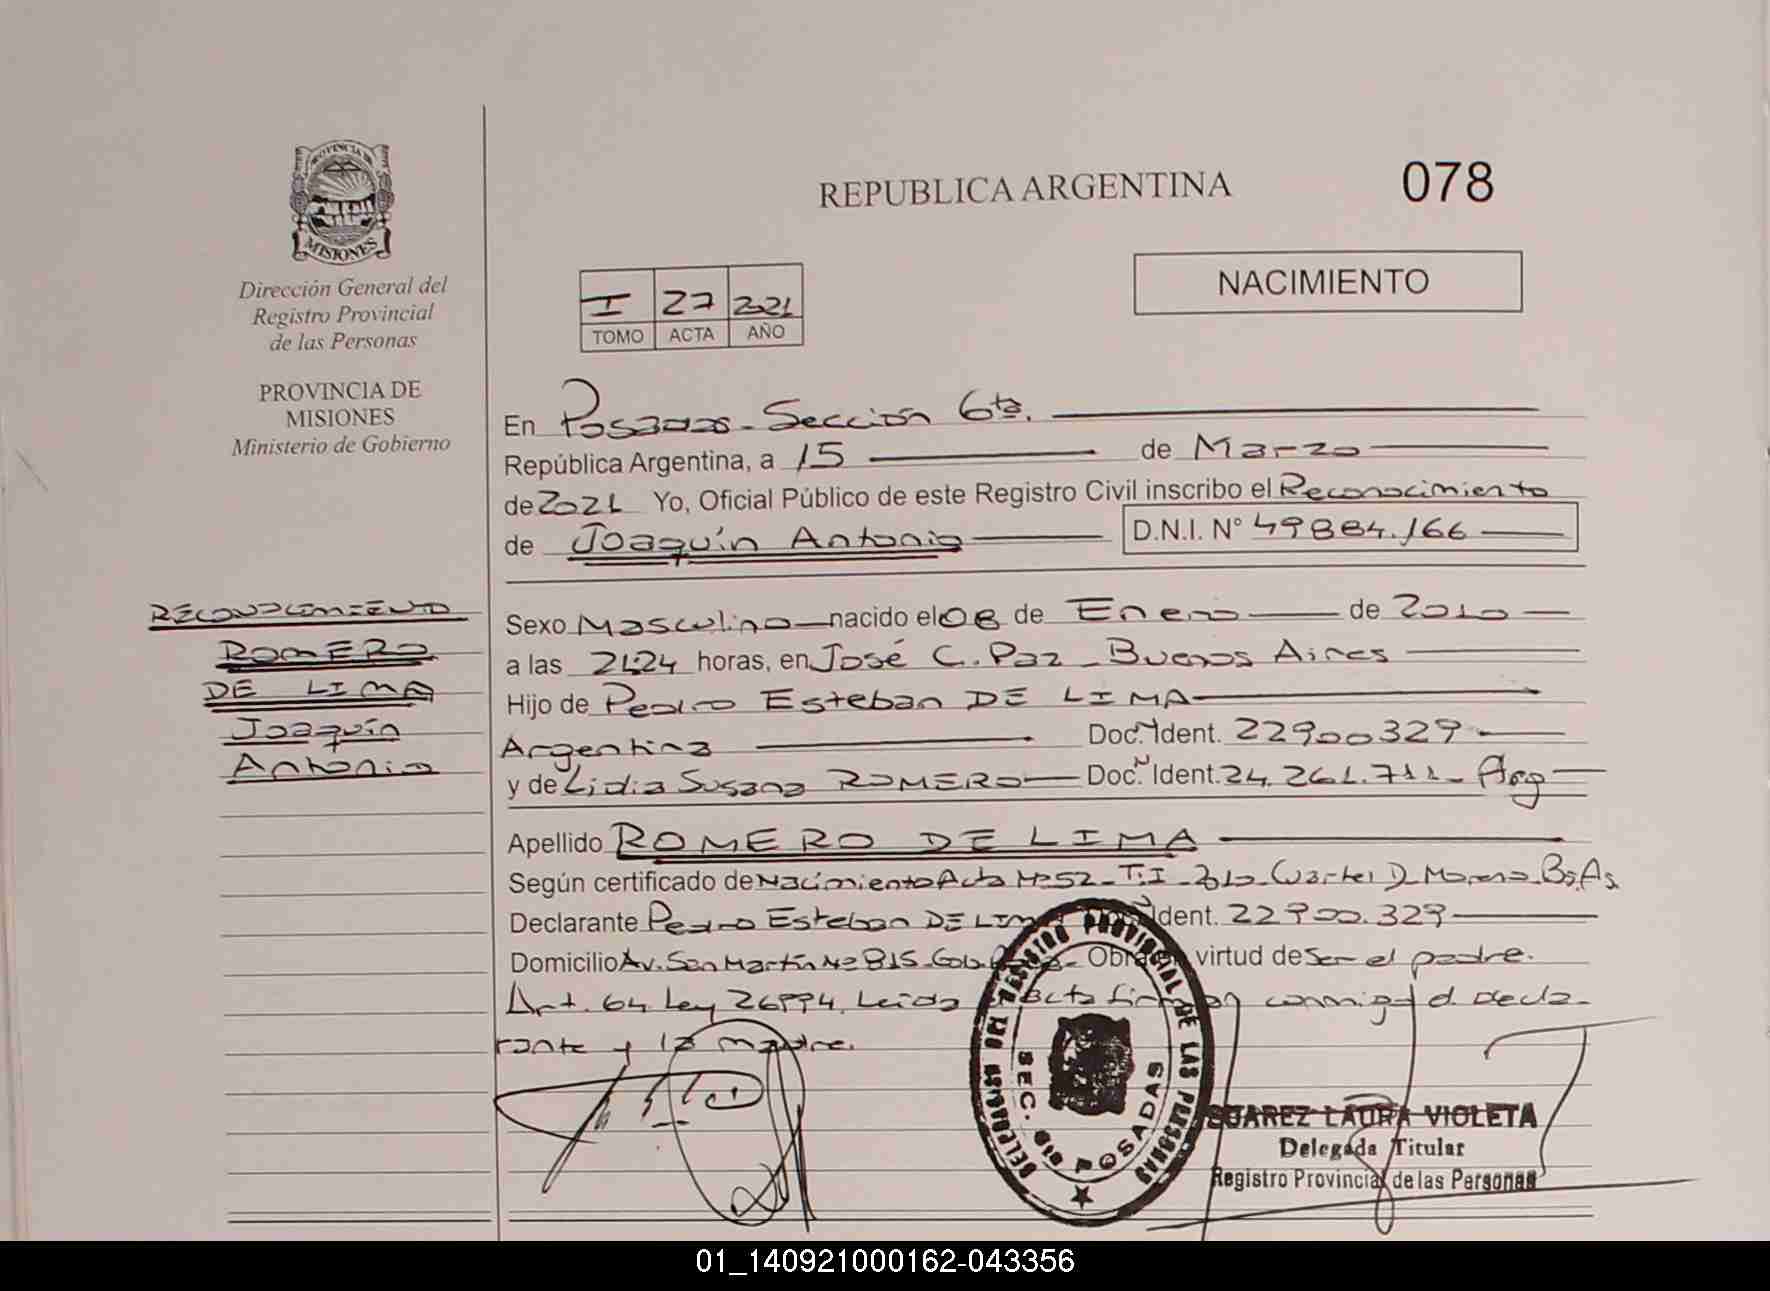 PROVINCIA DE
MISIONES
Dirección General del
Registro Provincial
de las Personas
PROVINCIA DE
MISIONES
Ministerio de Gobierno
RECONOCIMIENTO
ROMERO
DE LIMA
Joaquín
Antonio
REPUBLICA ARGENTINA
078
NACIMIENTO
I 27 2021
TOMO ACTA AÑO
En Posadas - Sección 6ta.
República Argentina, a 15 de Marzo
de 2021 Yo, Oficial Público de este Registro Civil inscribo el Reconocimiento
de Joaquín Antonio D.N.I. N° 49884.166
Sexo Masculino nacido el 08 de Enero de 2010
a las 21:24 horas, en José C. Paz - Buenos Aires
Hijo de Pedro Esteban DE LIMA
Argentina Doc. Ident. 22900329
y de Lidia Susana ROMERO Doc. Ident. 24.261.711 - Arg
Apellido ROMERO DE LIMA
Según certificado de Nacimiento Acta Nº 52 - T: I - 2010 - Cuartel D - Moreno - Bs. As.
Declarante Pedro Esteban DE LIMA Ident. 22900.329
Domicilio Av. San Martín Nº 815 - Gob. Obra en virtud de ser el padre.
Art. 64 Ley 26994. Leída acta firman conmigo el decla-
rante y la madre.
DELEGACION DEL REGISTRO PROVINCIAL DE LAS PERSONAS
SEC. 6ta POSADAS
SUAREZ LAURA VIOLETA
Delegada Titular
Registro Provincial de las Personas
01_140921000162-043356